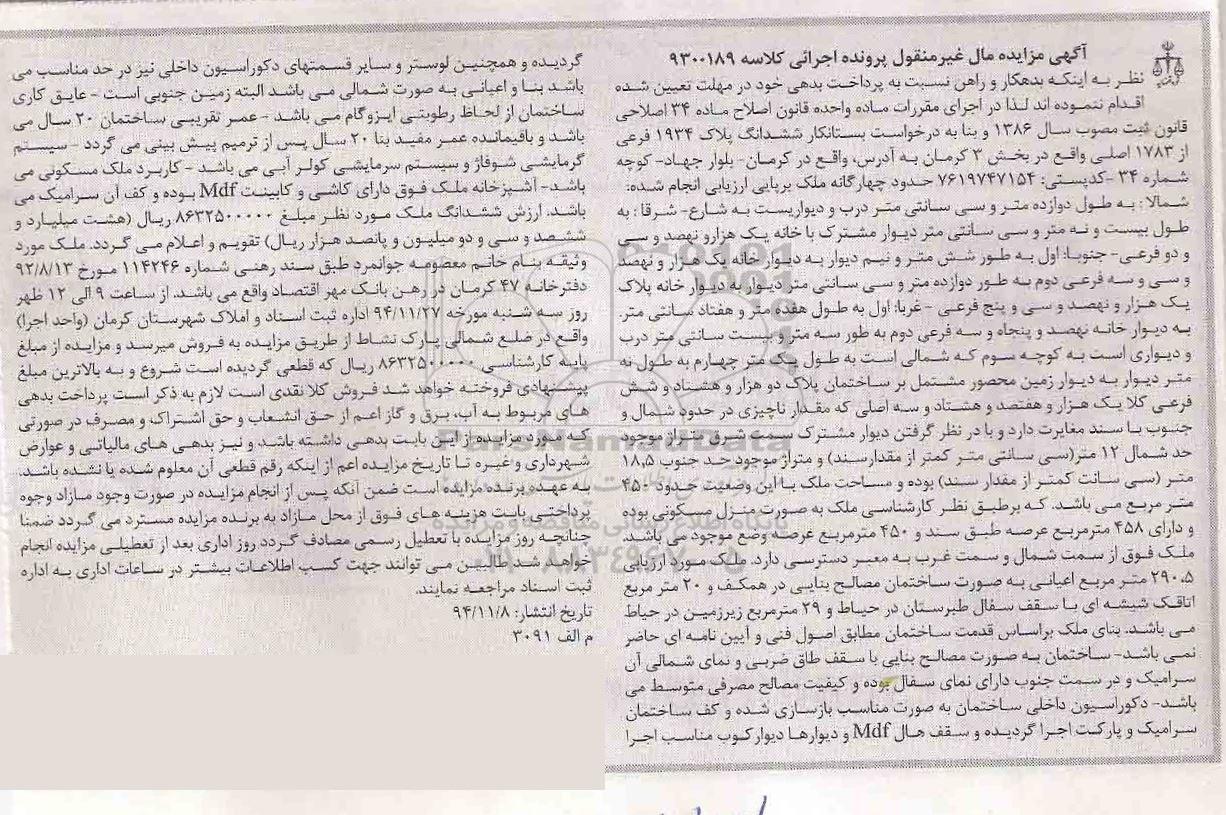 آگهی مزایده مال غیرمنقول پرونده اجرائی کلاسه ۹۳۰۰۱۸۹
نظر به اینکه بدهکار و راهن نسبت به پرداخت بدهی خود در مهلت تعیین شده
اقدام ننموده اند لذا در اجرای مقررات ماده واحده قانون اصلاح ماده ۳۴ اصلاحی
قانون ثبت مصوب سال ۱۳۸۶ و بنا به درخواست بستانکار ششدانگ پلاک ۱۹۳۴ فرعی
از ۱۷۸۳ اصلی واقع در بخش ۳ کرمان به آدرس، واقع در کرمان- بلوار جهاد- کوچه
شماره ۳۴ -کدپستی: ۷۶۱۹۷۴۷۱۵۴ حدود چهارگانه ملک برپایی ارزیابی انجام شده:
شمالا: به طول دوازده متر و سی سانتی متر درب و دیواریست به شارع- شرقا: به
طول بیست و نه متر و سی سانتی متر دیوار مشترک با خانه یک هزارو نهصد و سی
و دو فرعی- جنوبا: اول به طور شش متر و نیم دیوار به دیوار خانه یک هزار و نهصد
و سی و سه فرعی دوم به طور دوازده متر و سی سانتی متر دیوار به دیوار خانه پلاک
یک هزار و نهصد و سی و پنج فرعی - غربا: اول به طول هفده متر و هفتاد سانتی متر.
به دیوار خانه نهصد و پنجاه و سه فرعی دوم به طور سه متر و بیست سانتی متر درب
و دیواری است به کوچه سوم که شمالی است به طول یک متر چهارم به طول نه
متر دیوار به دیوار زمین محصور مشتمل بر ساختمان پلاک دو هزار و هشتاد و شش
فرعی کلا یک هزار و هفتصد و هشتاد و سه اصلی که مقدار ناچیزی در حدود شمال و
جنوب با سند مغایرت دارد و با در نظر گرفتن دیوار مشترک سمت شرق متراژ موجود
حد شمال ۱۲ متر(سی سانتی متر کمتر از مقدارسند) و متراژ موجود حد جنوب ۱۸٫۵
متر (سی سانت کمتر از مقدار سند) بوده و مساحت ملک با این وضعیت حدود ۴۵۰
متر مربع می باشد. که برطبق نظر کارشناسی ملک به صورت منزل مسکونی بوده
و دارای ۴۵۸ مترمربع عرصه طبق سند و ۴۵۰ مترمربع عرصه وضع موجود می باشد.
ملک فوق از سمت شمال و سمت غرب به معبر دسترسی دارد. ملک مورد ارزیابی
۲۹۰٫۵ متر مربع اعیانی به صورت ساختمان مصالح بنایی در همکف و ۲۰ متر مربع
اتاقک شیشه ای با سقف سفال طبرستان در حیاط و ۲۹ مترمربع زیرزمین در حیاط
می باشد. بنای ملک براساس قدمت ساختمان مطابق اصول فنی و آیین نامه ای حاضر
نمی باشد- ساختمان به صورت مصالح بنایی با سقف طاق ضربی و نمای شمالی آن
سرامیک و در سمت جنوب دارای نمای سفال بوده و کیفیت مصالح مصرفی متوسط می
باشد- دکوراسیون داخلی ساختمان به صورت مناسب بازسازی شده و کف ساختمان
سرامیک و پارکت اجرا گردیده و سقف هال Mdf و دیوارها دیوارکوب مناسب اجرا
گردیده و همچنین لوستر و سایر قسمتهای دکوراسیون داخلی نیز در حد مناسب می
باشد بنا و اعیانی به صورت شمالی می باشد البته زمین جنوبی است - عایق کاری
ساختمان از لحاظ رطوبتی ایزوگام می باشد - عمر تقریبی ساختمان ۲۰ سال می
باشد و باقیمانده عمر مفید بنا ۲۰ سال پس از ترمیم پیش بینی می گردد - سیستم
گرمایشی شوفاژ و سیستم سرمایشی کولر آبی می باشد - کاربرد ملک مسکونی می
باشد- آشپزخانه ملک فوق دارای کاشی و کابینت Mdf بوده و کف آن سرامیک می
باشد. ارزش ششدانگ ملک مورد نظر مبلغ ۸۶۳۲۵۰۰۰۰۰ ریال (هشت میلیارد و
ششصد و سی و دو میلیون و پانصد هزار ریال) تقویم و اعلام می گردد. ملک مورد
وثیقه بنام خانم معصومه جوانمرد طبق سند رهنی شماره ۱۱۴۲۴۶ مورخ ۹۲/۸/۱۳
دفترخانه ۴۷ کرمان در رهن بانک مهر اقتصاد واقع می باشد. از ساعت ۹ الی ۱۲ ظهر
روز سه شنبه مورخه ۹۴/۱۱/۲۷ اداره ثبت اسناد و املاک شهرستان کرمان (واحد اجرا)
واقع در ضلع شمالی پارک نشاط از طریق مزایده به فروش میرسد و مزایده از مبلغ
پایه کارشناسی ۸۶۳۲۵۰۰۰۰۰ ریال که قطعی گردیده است شروع و به بالاترین مبلغ
پیشنهادی فروخته خواهد شد فروش کلا نقدی است لازم به ذکر است پرداخت بدهی
های مربوط به آب، برق و گاز اعم از حق انشعاب و حق اشتراک و مصرف در صورتی
که مورد مزایده از این بابت بدهی داشته باشد و نیز بدهی های مالیاتی و عوارض
شهرداری و غیره تا تاریخ مزایده اعم از اینکه رقم قطعی آن معلوم شده یا نشده باشد.
به عهده برنده مزایده است ضمن آنکه پس از انجام مزایده در صورت وجود مازاد وجوه
پرداختی بابت هزینه های فوق از محل مازاد به برنده مزایده مسترد می گردد ضمنا
چنانچه روز مزایده با تعطیل رسمی مصادف گردد روز اداری بعد از تعطیلی مزایده انجام
خواهد شد طالبین می توانند جهت کسب اطلاعات بیشتر در ساعات اداری به اداره
ثبت اسناد مراجعه نمایند.
تاریخ انتشار: ۹۴/۱۱/۸
م الف ۳۰۹۱
ParsNamadData
پایگاه اطلاع رسانی مناقصه و مزایده